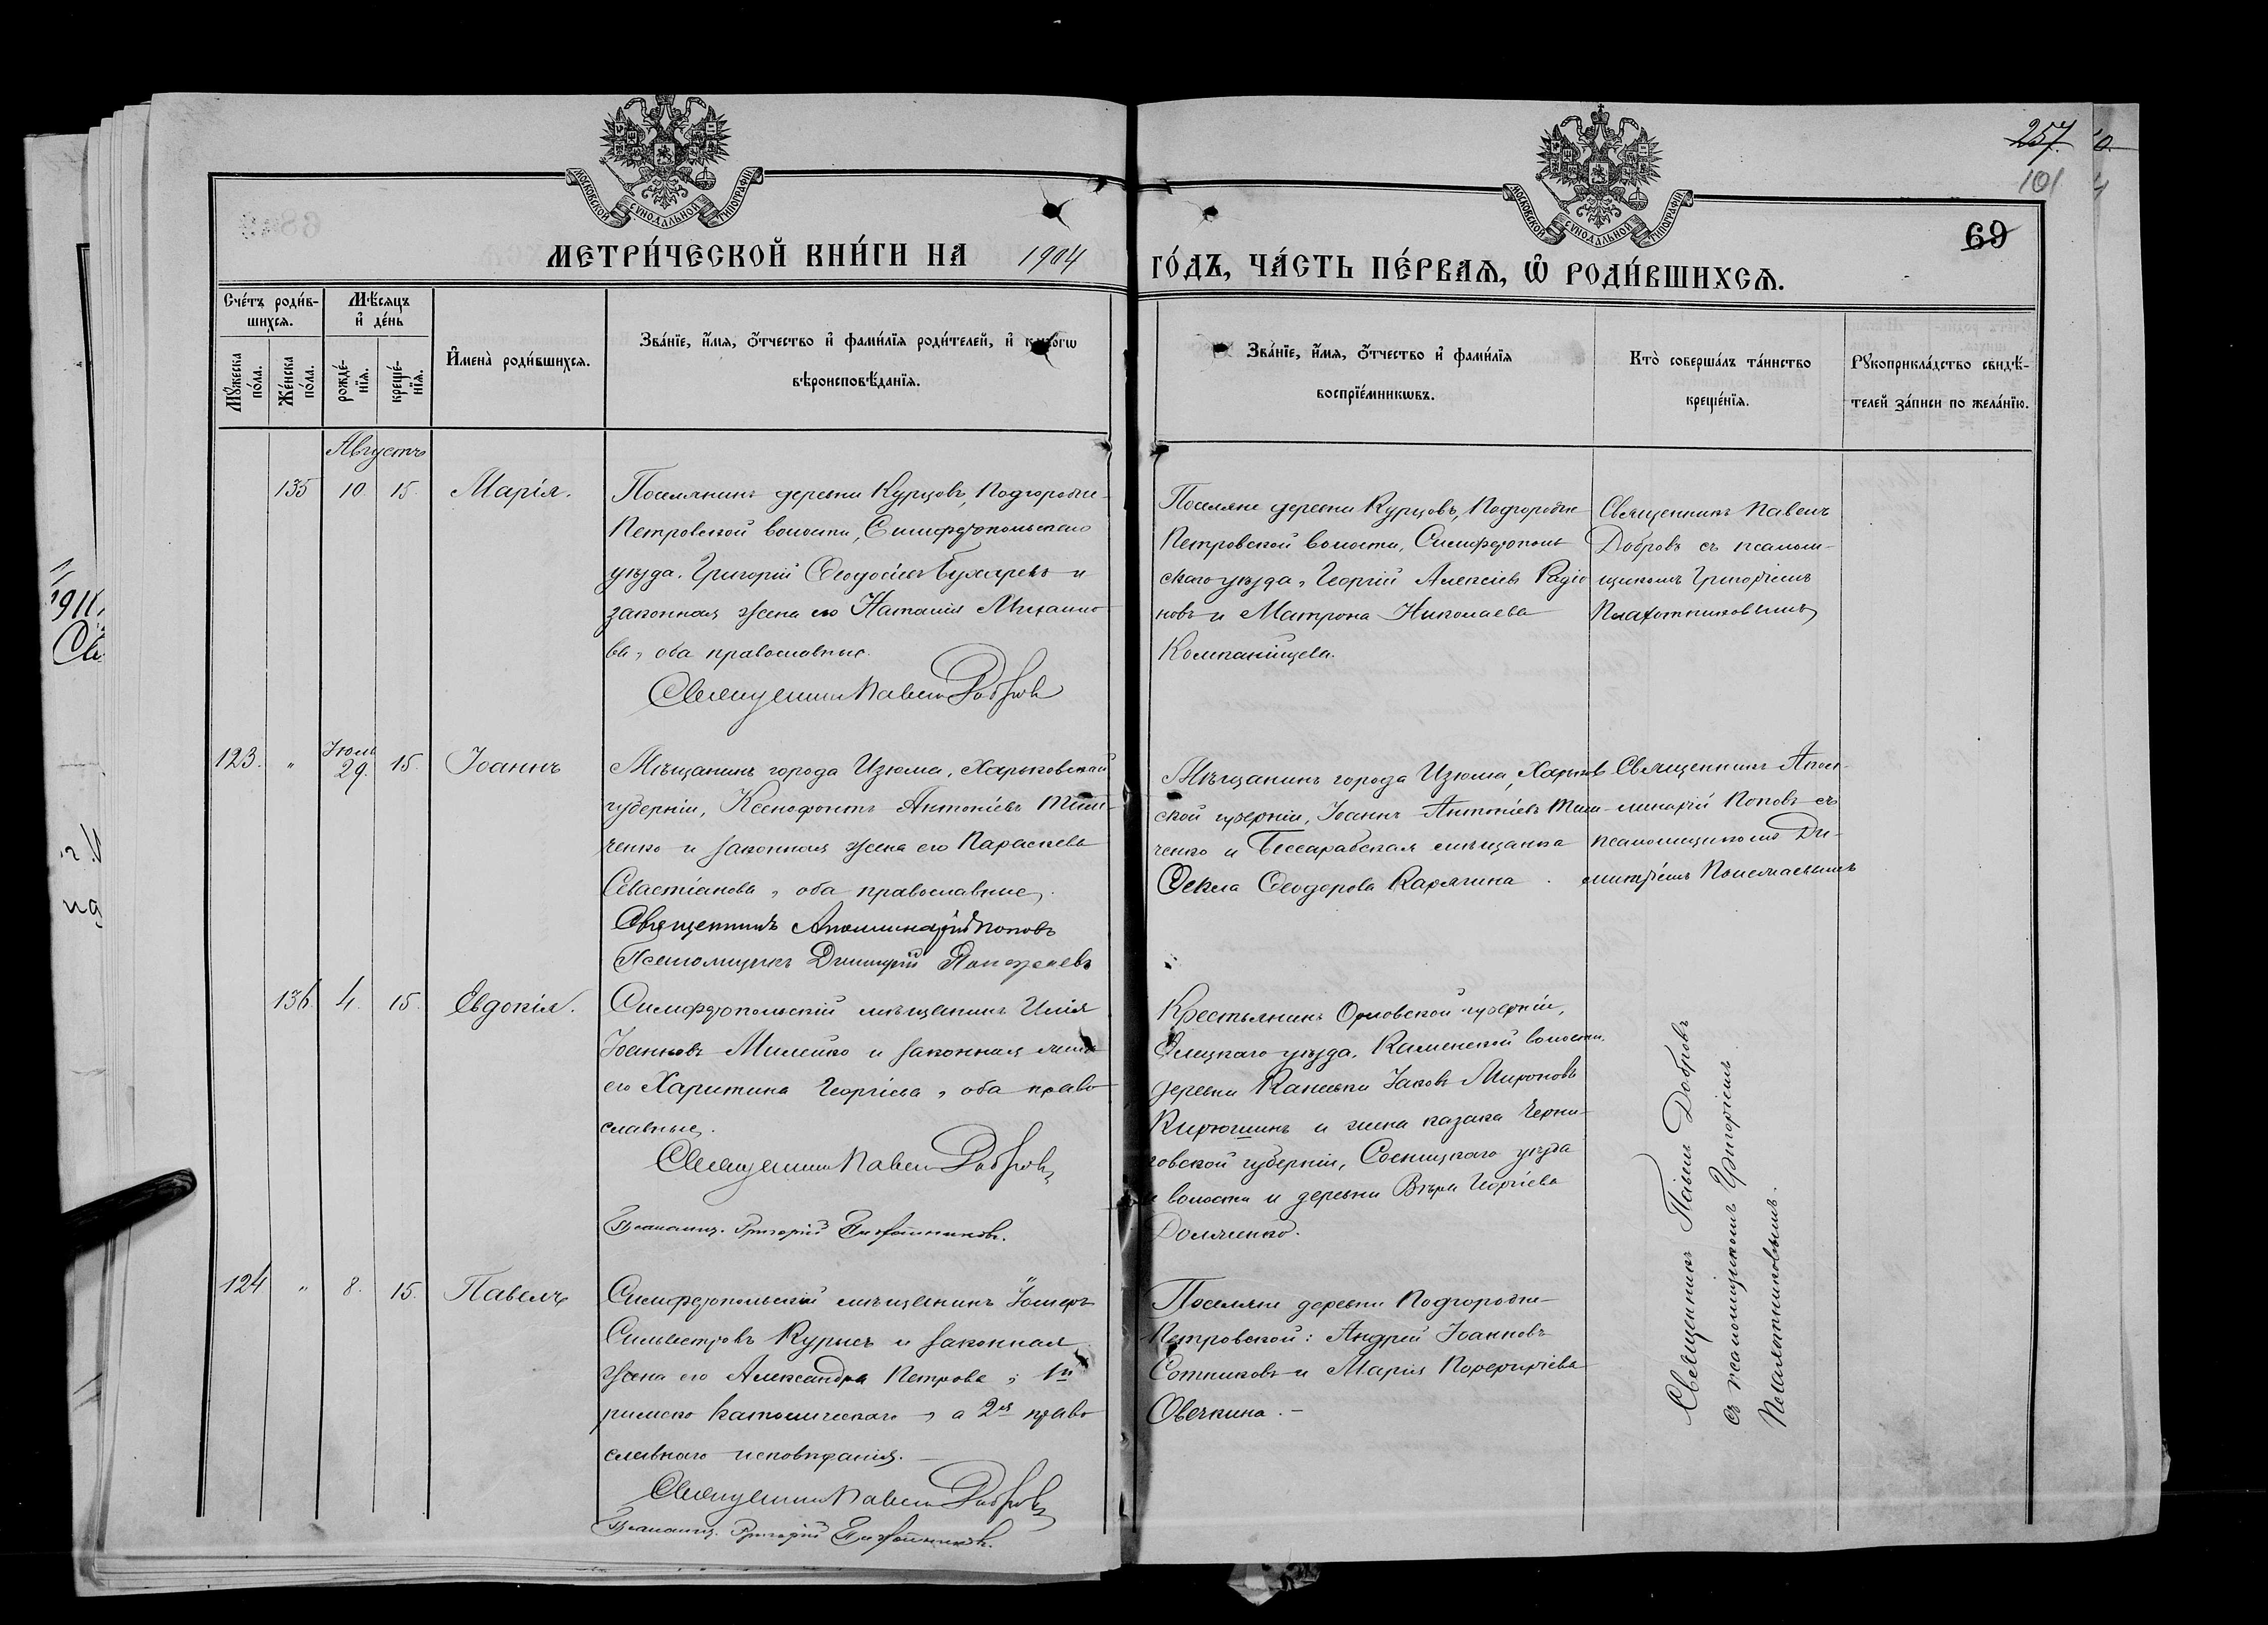 257.
101
69
МОСКОВСКОЙ СУНОДАЛЬНОЙ ТИПОГРАФІИ
МОСКОВСКОЙ СУНОДАЛЬНОЙ ТИПОГРАФІИ
МЕТРИ́ЧЕСКОЙ КНИ́ГИ НА 1904 ГО́ДЪ, ЧА́СТЬ ПЕ́РВАѦ, Ѡ҆ РОДИ́ВШИХСѦ.
Сче́тъ роди́в-
шихсѧ.
Мѣ́сѧцъ
и҆ де́нь
Мꙋ́жеска
по́ла.
Же́нска
по́ла.
рожде́-
нїѧ.
креще́-
нїѧ.
И҆мена̀ роди́вшихсѧ.
Зва́нїе, и҆́мѧ, ѻ҆́тчество и҆ фами́лїѧ роди́телей, и҆
вѣроисповѣ́данїѧ.
Зва́нїе, и҆́мѧ, ѻ҆́тчество и҆ фами́лїѧ
воспрїе́мникѡвъ.
Кто̀ соверша́лъ та́инство
креще́нїѧ.
Рꙋкоприкла́дство свидѣ́-
телей за́писи по жела́нїю.
Августъ
135 10. 15. Марія.
Поселянинъ деревни Курцовъ, Подгородне-
Петровской волости, Симферопольскаго
уѣзда, Григорій Ѳеодосіевъ Бухаревъ и
законная жена его Наталія Михаило-
ва, оба православные.
Священникъ Павелъ Добровъ
Поселяне деревни Курцовъ, Подгородне-
Петровской волости, Симферополь-
скаго уѣзда, Георгій Алексіевъ Радіо
новъ и Матрона Николаева
Компанійцева.
Священникъ Павелъ
Добровъ съ псалом-
щикомъ Григоріемъ
Плахотниковымъ
123. " Іюль 29. 15. Іоаннъ
Мѣщанинъ города Изюма, Харьковской
губерніи, Ксенофонтъ Антоніевъ
ченко и законная жена его Параскева
Севастіанова, оба православные.
Священникъ Аполлинарій Поповъ
Псаломщикъ Димитрій
Мѣщанинъ города Изюма, Харьков
ской губерніи, Іоаннъ Антоніевъ
ченко и Бессарабская мѣщанка
Ѳекла Ѳеодорова Карягина.
Священникъ Апол-
линарій Поповъ съ
псаломщикомъ Ди-
митріемъ
136. 4. 15. Евдокія.
Симферопольскій мѣщанинъ Илія
Іоанновъ Милейко и законная жена
его Харитина Георгіева, оба право-
славные.
Священникъ Павелъ Добровъ
Псаломщ. Григорій Плахотниковъ.
Крестьянинъ Орловской губерніи,
Елецкаго уѣзда, Каменской волости,
деревни Іаковъ Мироновъ
Кирюшинъ и жена казака Черни-
говской губерніи, Сосницкаго уѣзда
и волости и деревни Вѣра Георгіева
Долженко.
124 " 8. 15. Павелъ
Симферопольскій мѣщанинъ Іосифъ
Сильвестровъ Курысъ и законная
жена его Александра Петрова; 1й
римско католическаго, а 2я право-
славнаго исповѣданія.
Священникъ Павелъ Добровъ
Псаломщ. Григорій Плахотниковъ.
Поселяне деревни Подгородне-
Петровской: Андрей Іоанновъ
Сотниковъ и Марія Порфиріева
Овечкина.-
Священникъ Павелъ Добровъ
съ псаломщикомъ Григоріемъ
Плахотниковымъ.